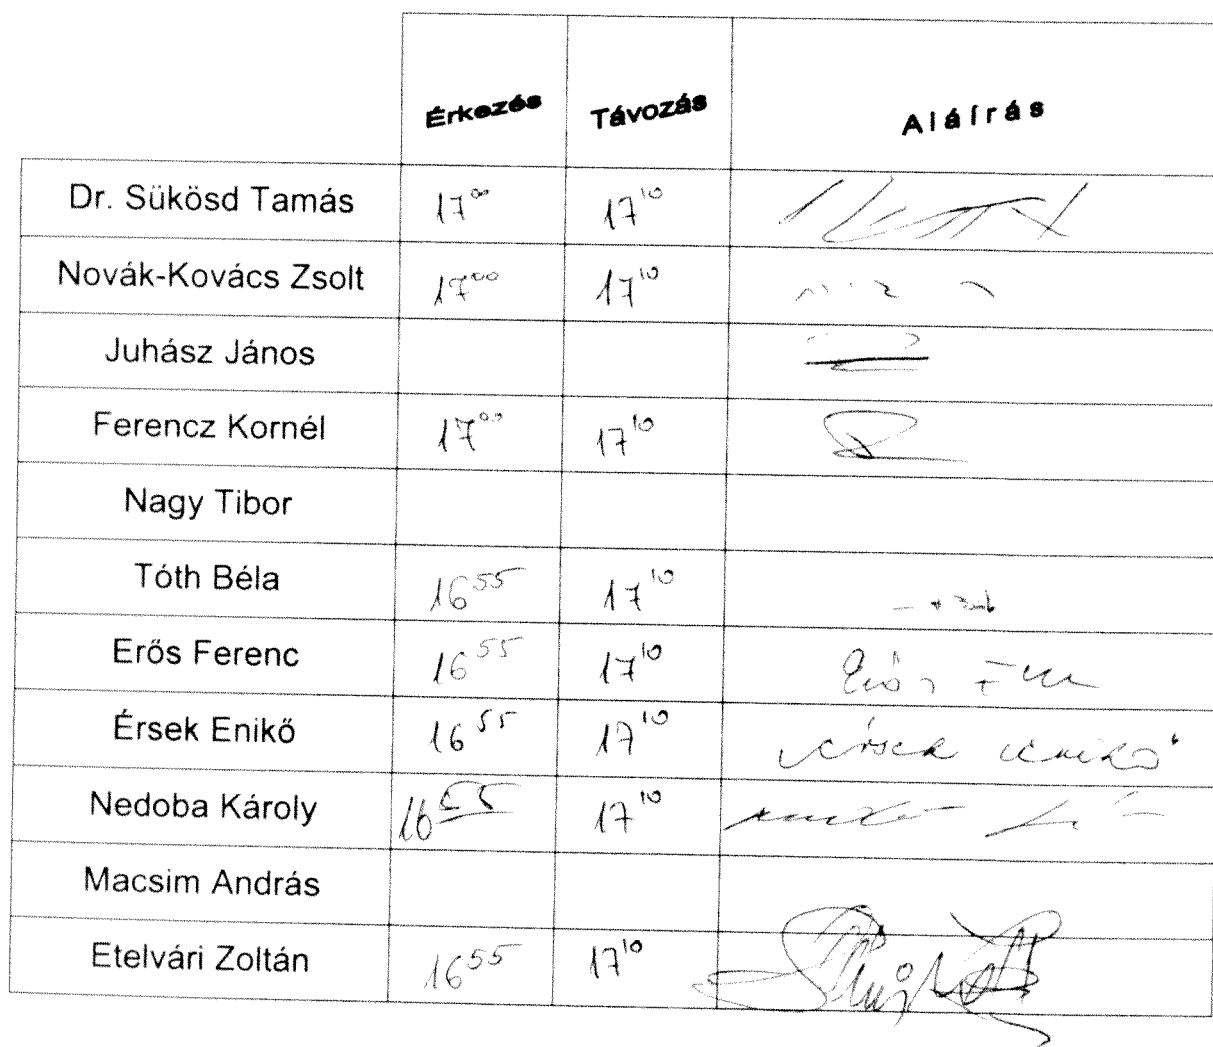 Érkezés Távozás Aláírás
Dr. Sükösd Tamás 17⁰⁰ 17¹⁰
Novák-Kovács Zsolt 17⁰⁰ 17¹⁰
Juhász János
Ferencz Kornél 17⁰⁰ 17¹⁰
Nagy Tibor
Tóth Béla 16⁵⁵ 17¹⁰
Erős Ferenc 16⁵⁵ 17¹⁰ Erős
Érsek Enikő 16⁵⁵ 17¹⁰ Érsek Enikő
Nedoba Károly 16⁵⁵ 17¹⁰
Macsim András
Etelvári Zoltán 16⁵⁵ 17¹⁰